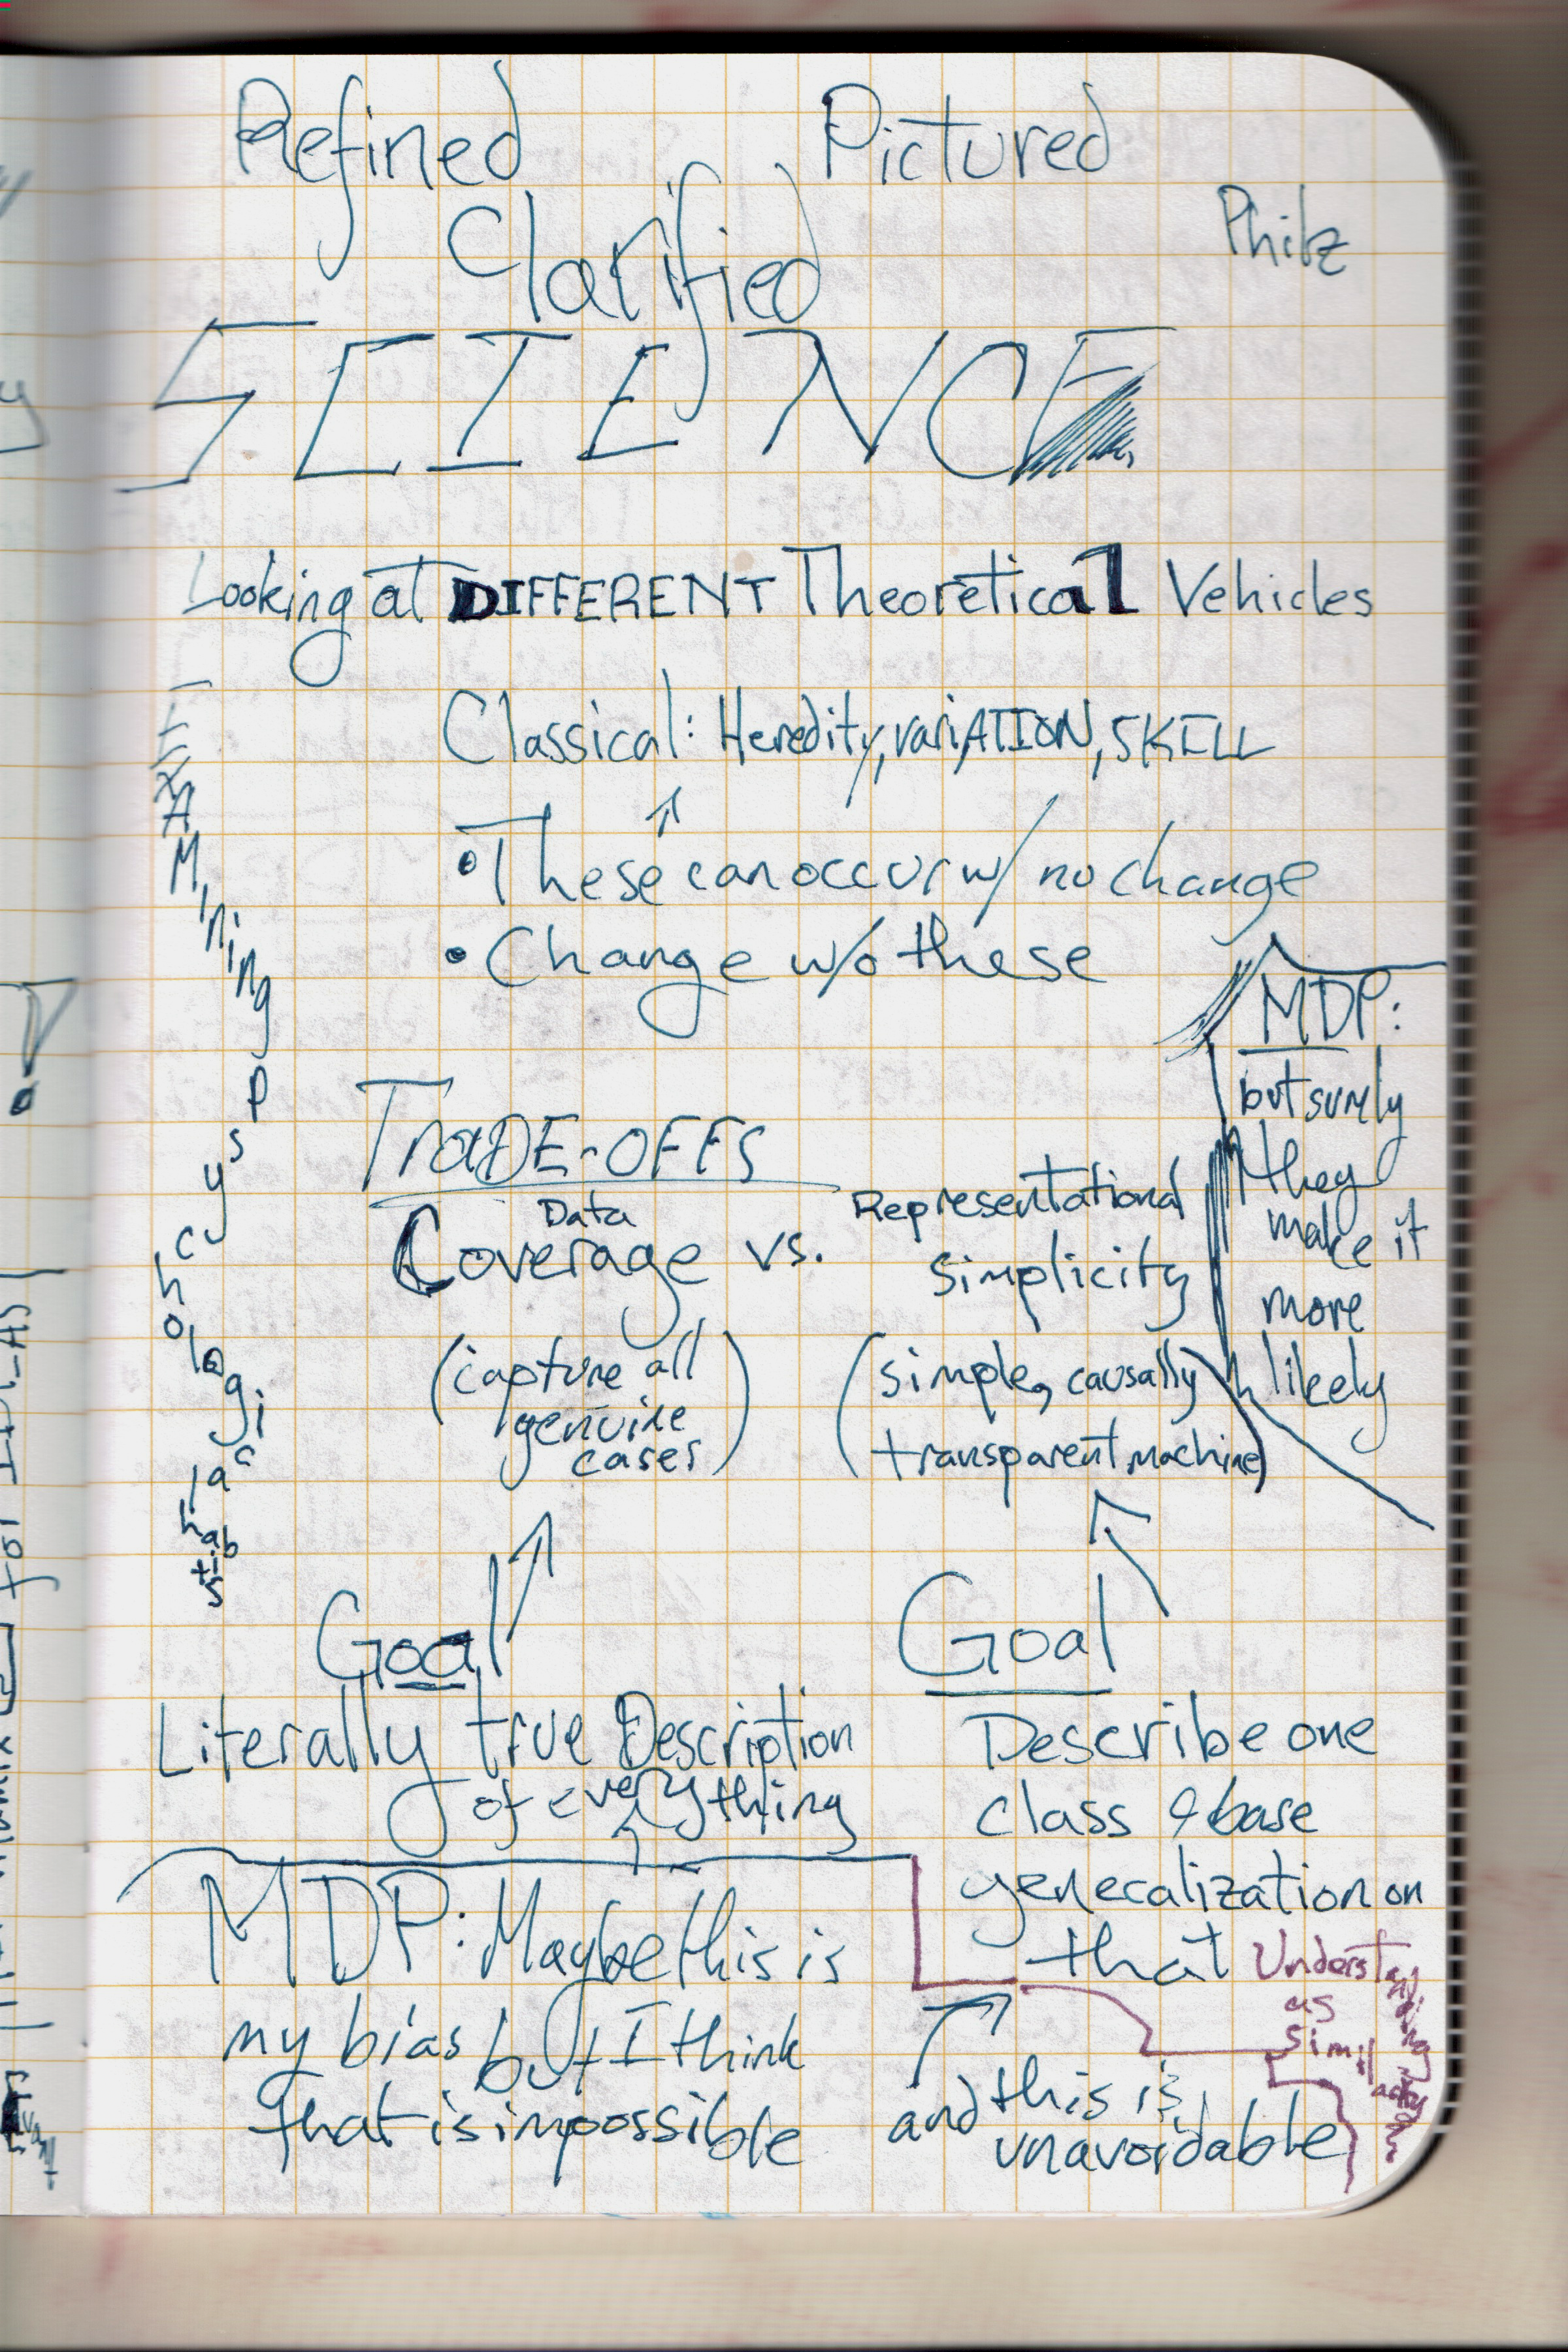 Refined
Pictured
Clarified
Philz
SCIENCE
Looking at DIFFERENT Theoretical Vehicles
Classical: Heredity, variATION, SKILL
• These can occur w/ no change
• Change w/o these
EXAMining Psychological habits
MDP:
but surely
they
make it
more
likely
TraDE-OFFS
Data
Coverage vs.
Representational
Simplicity
(capture all
genuine
cases)
(simple, causally
transparent machine)
Goal
Literally true Description
of everything
Goal
Describe one
class & base
generalization on
that
MDP: Maybe this is
my bias but I think
that is impossible
and this is
unavoidable
Understanding
as
Simillaction
for